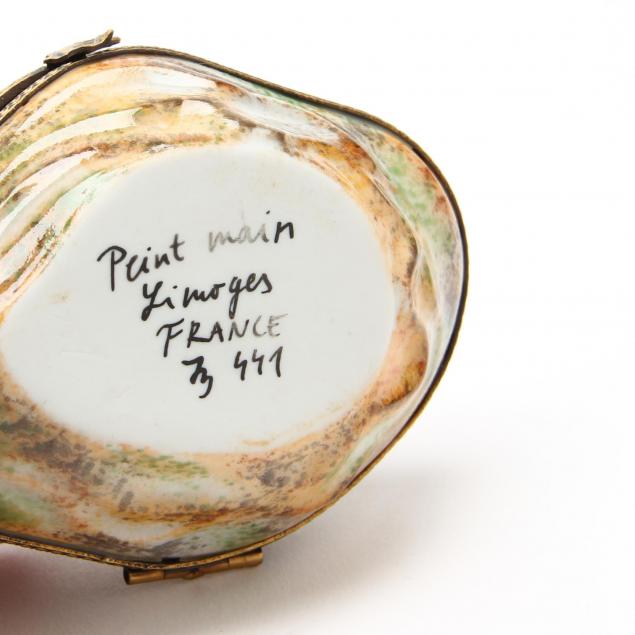 Peint main
Limoges
FRANCE
441